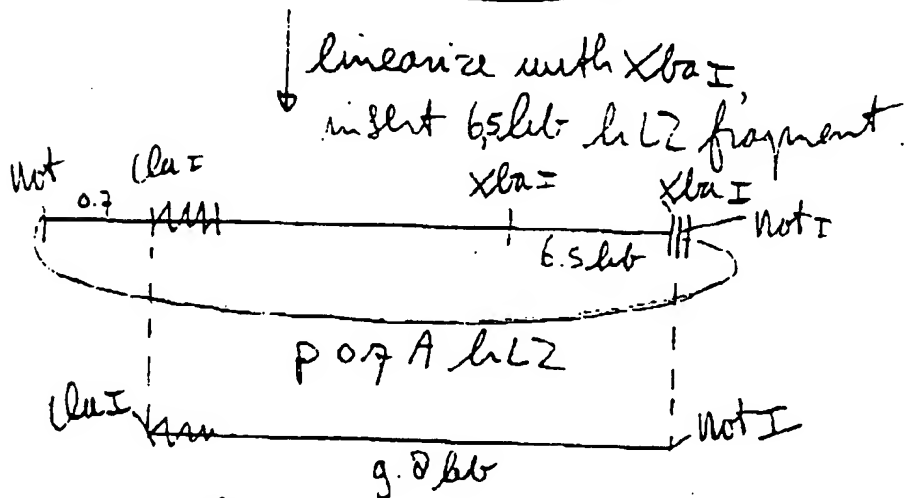 linearize with XbaI,
insert 6,5kb hLZ fragment.
Not ClaI XbaI XbaI
0.7 NotI
6.5 kb
p 0.7 A hLZ
ClaI NotI
kb